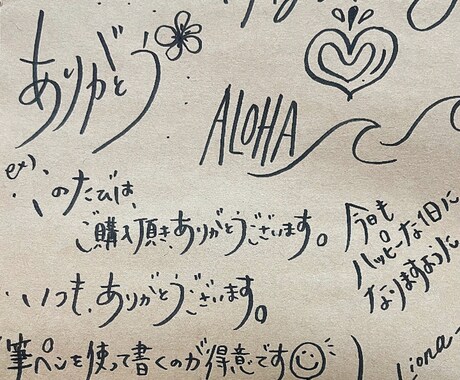 ありがとう
ALOHA
ex)
このたびは、
ご購入頂き、ありがとうございます。
今日も
ハッピーな1日に
なりますように
いつも、ありがとうございます。
筆ペンを使って書くのが得意です )